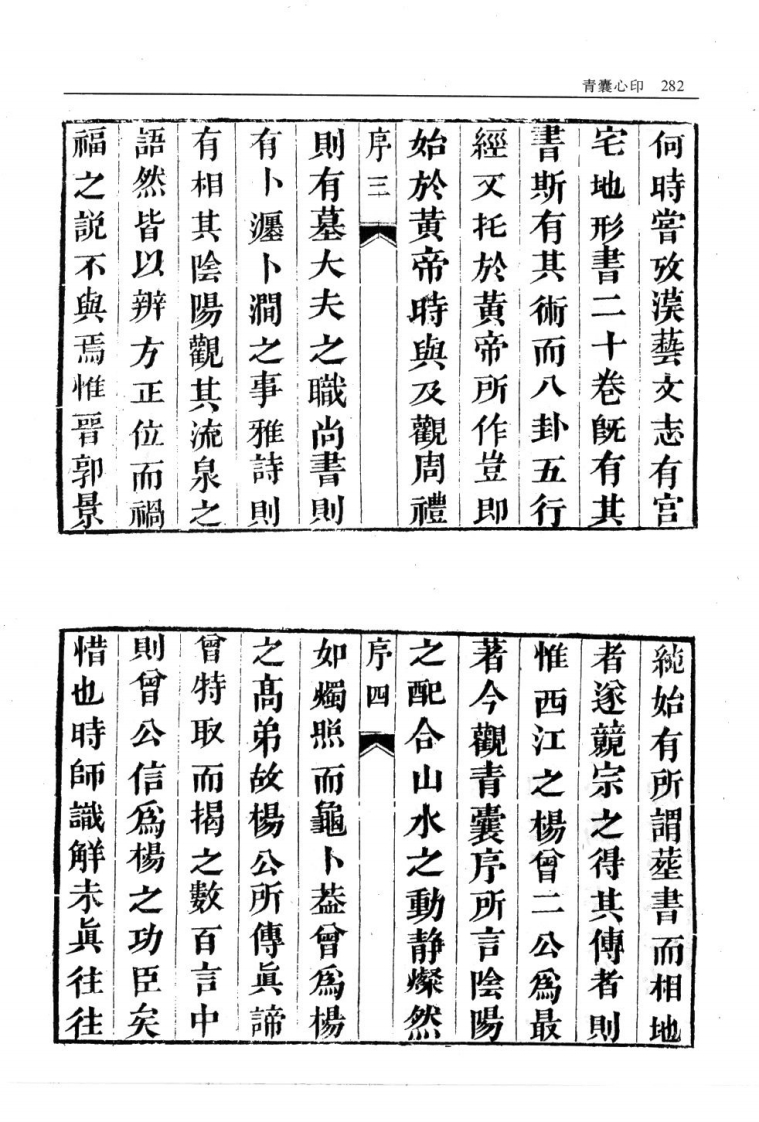 青囊心印 282
何時嘗攷漢藝文志有宫
宅地形書二十卷旣有其
書斯有其術而八卦五行
經又托於黄帝所作豈即
始於黄帝時與及觀周禮
序三
則有墓大夫之職尚書則
有卜瀍卜澗之事雅詩則
有相其陰陽觀其流泉之
語然皆以辨方正位而禍
福之説不與焉惟晉郭景
純始有所謂塟書而相地
者遂競宗之得其傳者則
惟西江之楊曾二公爲最
著今觀青囊序所言陰陽
之配合山水之動静燦然
序四
如燭照而龜卜葢曾爲楊
之高弟故楊公所傳眞諦
曾特取而揭之數百言中
則曾公信爲楊之功臣矣
惜也時師識解未眞往往